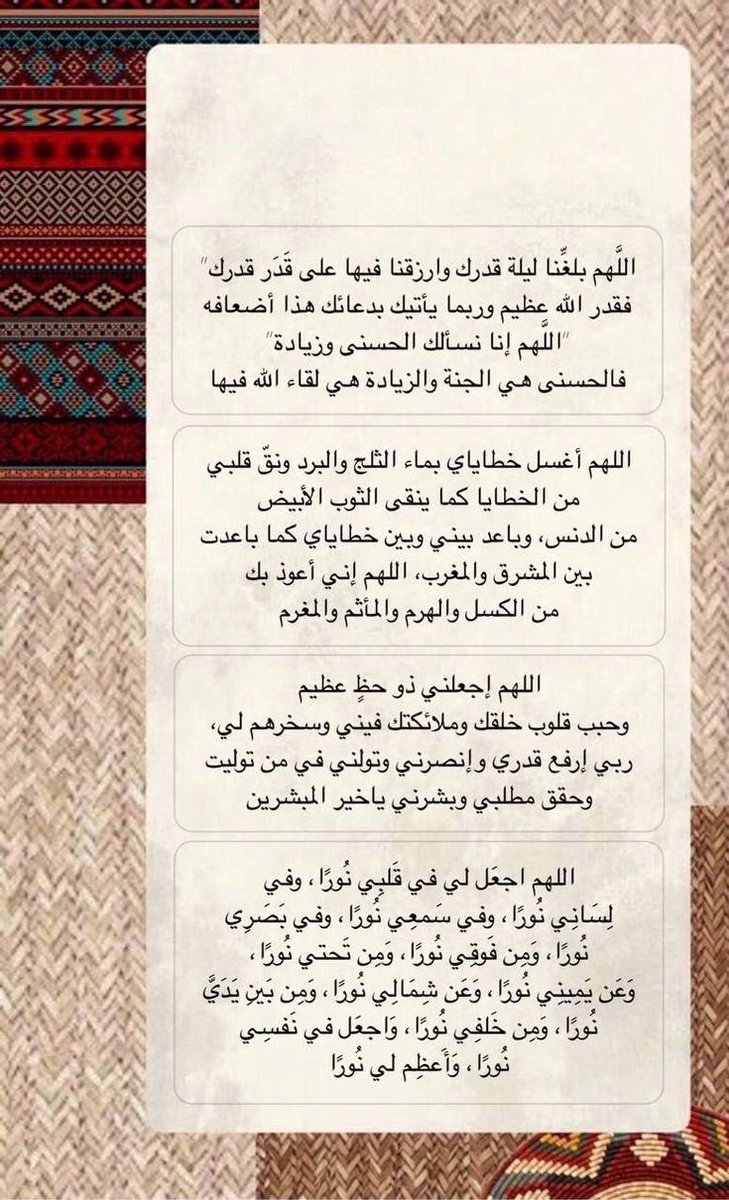 اللَّهم بلغِّنا ليلة قدرك وارزقنا فيها على قَدَر قدرك"
فقدر الله عظيم وربما يأتيك بدعائك هذا أضعافه
"اللَّهم إنا نسألك الحسنى وزيادة"
فالحسنى هي الجنة والزيادة هي لقاء الله فيها
اللهم أغسل خطاياي بماء الثلج والبرد ونقّ قلبي
من الخطايا كما ينقى الثوب الأبيض
من الدنس، وباعد بيني وبين خطاياي كما باعدت
بين المشرق والمغرب، اللهم إني أعوذ بك
من الكسل والهرم والمأثم والمغرم
اللهم إجعلني ذو حظٍ عظيم
وحبب قلوب خلقك وملائكتك فيني وسخرهم لي،
ربي إرفع قدري وإنصرني وتولني في من توليت
وحقق مطلبي وبشرني ياخير المبشرين
اللهم اجعَل لي في قَلبِي نُورًا ، وفي
لِسَانِي نُورًا ، وفي سَمعِي نُورًا ، وفي بَصَرِي
نُورًا ، وَمِن فَوقِي نُورًا ، وَمِن تَحتي نُورًا ،
وَعَن يَمِينِي نُورًا ، وَعَن شِمَالِي نُورًا ، وَمِن بَينِ يَدَيَّ
نُورًا ، وَمِن خَلفِي نُورًا ، وَاجعَل في نَفسِي
نُورًا ، وَأَعظِم لي نُورًا